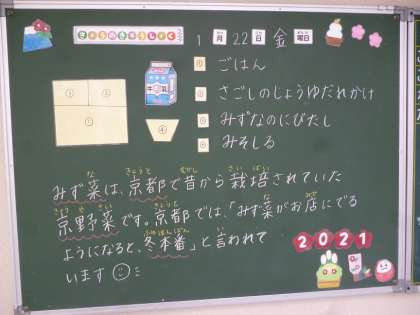 きょうのきゅうしょく
1月22日金曜日
牛乳
① ごはん
② さごしのしょうゆだれかけ
③ みずなのにびたし
④ みそしる
みず菜は、京都で昔から栽培されていた
京野菜です。京都では、「みず菜がお店にでる
ようになると、冬本番」と言われて
います
2021